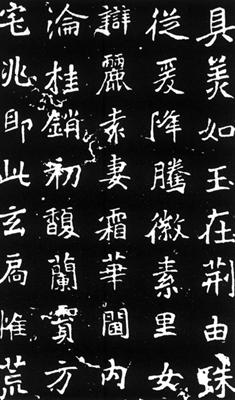 具美如玉在荆由蛛
從爰降騰徽素里女
辯麗素妻霜華閫内
淪桂銷初馥蘭方
宅兆即此玄扃惟荒